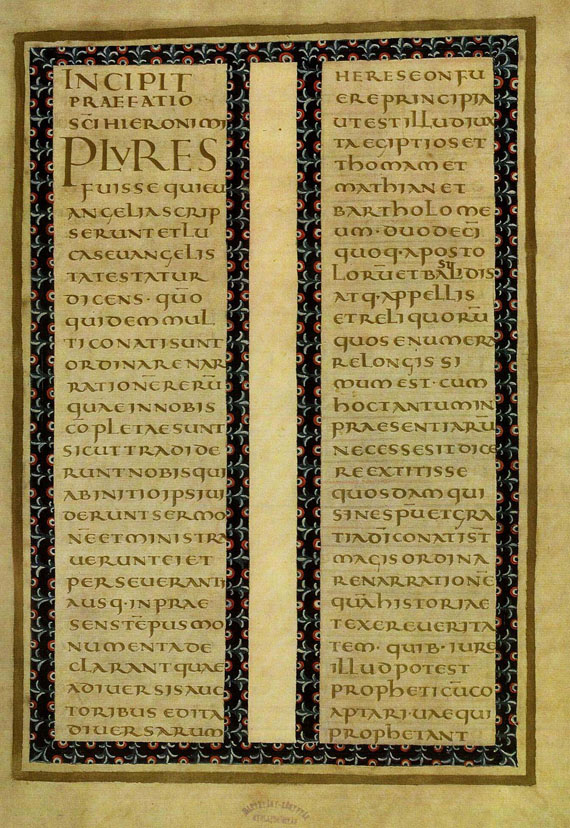 INCIPIT
PRAEFATIO
SC̄I HIERONIMI
PLVRES
FUISSE QUI EU
ANGELIA SCRIP
SERUNT ET LU
CAS EUANGELIS
TA TESTATUR
DICENS · QUŌ
QUIDEM MUL
TI CONATI SUNT
ORDINARE NAR
RATIONĒ RERŪ
QUAE IN NOBIS
CŌPLETAE SUNT
SICUT TRADIDE
RUNT NOBIS QUI
AB INITIO IPSI UI
DERUNT SERMO
NĒ ET MINISTRA
UERUNT EI ET
PERSEUERANT
AUSQ · IN PRAE
SENS TĒPUS MO
NUMENTA DE
CLARANT QUAE
A DIUERSIS AUC
TORIBUS EDITA
DIUERSARUM
HERESEON FU
ERE PRINCIPIA
UT EST ILLUD IUX
TA EGIPTIOS ET
THOMAM ET
MATHIAN ET
BARTHOLOME
UM · DUODECĪ
QUOQ · APOSTO
LORŪ ET BASILIDIS
ATQ · APPELLIS
ET RELIQUORŪ
QUOS ENUMERA
RE LONGISSI
MUM EST · CUM
HOC TANTUM IN
PRAESENTIARŪ
NECESSE SIT DICE
RE EXTITISSE
QUOSDAM QUI
SINE SPŪ ET GRA
TIA DĪ CONATI ST̄
MAGIS ORDINA
RE NARRATIONĒ
QUĀ HISTORIAE
TEXERE UERITA
TEM · QUIB · IURE
ILLUD POTEST
PROPHETICŪ CO
APTARI · UAE QUI
PROPHETANT